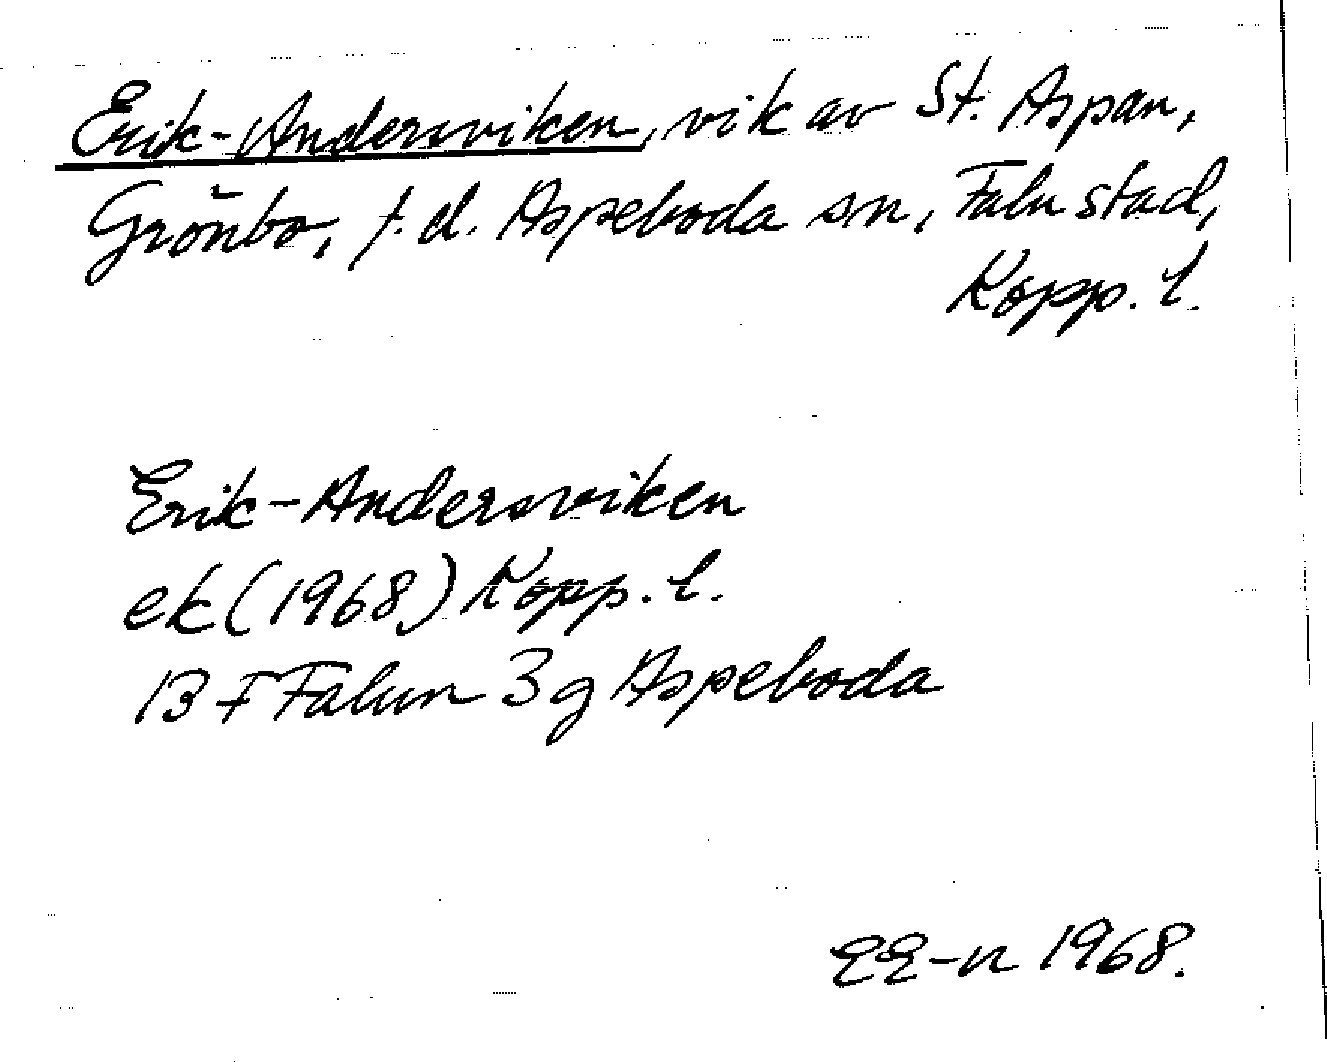 Erik-Andersviken, vik av St. Aspan,
Grönbo, f.d. Aspeboda sn, Falu stad,
Kopp. l.
Erik-Andersviken
ek (1968) Kopp. l.
13 F Falun 3 g Aspeboda
EE-n 1968.